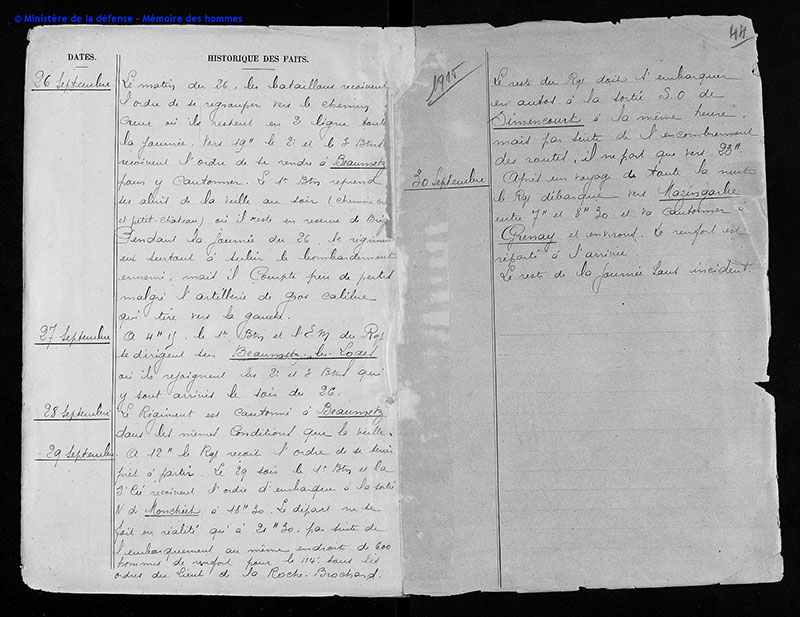 © Ministère de la défense - Mémoire des hommes
DATES.
HISTORIQUE DES FAITS.
26 Septembre
Le matin du 26, les bataillons recoivent
l'ordre de se regrouper vers le chemin
Creux où ils restent en 2e ligne toute
la journée. Vers 19h le 2e et le 3e Btns
recoivent l'ordre de se rendre à Beaumetz
pour y cantonner. Le 1er Btn reprend
ses abris de la veille au soir (chemin creux
et petit château) où il reste en reserve de Brig
Pendant la journée du 26, le régiment
eut surtout à subir le bombardement
ennemi, mais il Compte peu de pertes
malgré l'artillerie de gros calibre
qui tire vers la gauche.
27 Septembre
A 4h 15 le 1er Btn et l'E.M du Rgt
se dirigent sur Beaumetz-les-Loges
où ils rejoignent les 2e et 3e Btns qui
y sont arrivés le soir du 26.
28 Septembre
Le Régiment est cantonné à Beaumetz
dans les mêmes Conditions que la veille.
29 Septembre
A 12h le Rgt recoit l'ordre de se tenir
prêt à partir. Le 29 soir le 1er Btn et la
Cie recoivent l'ordre d'embarquer à la sortie
N de Monchiet à 18h30. Le départ ne se
fait en réalité qu'à 21h30, par suite de
l'embarquement au même endroit de 600
hommes de renfort pour le 114e sous les
ordres du Lieut de la Roche-Brochard.
44
1915
Le reste du Rgt doit s'embarquer
en autos à la sortie S.O de
Simencourt à la même heure,
mais par suite de l'encombrement
des routes, il ne part que vers 23h.
30 Septembre
Après un voyage de toute la nuit
le Rgt débarque vers Mazingarbe
entre 7h et 8h30 et va cantonner à
Grenay et environs. Le renfort est
réparti à l'arrivée.
Le reste de la journée sans incident.